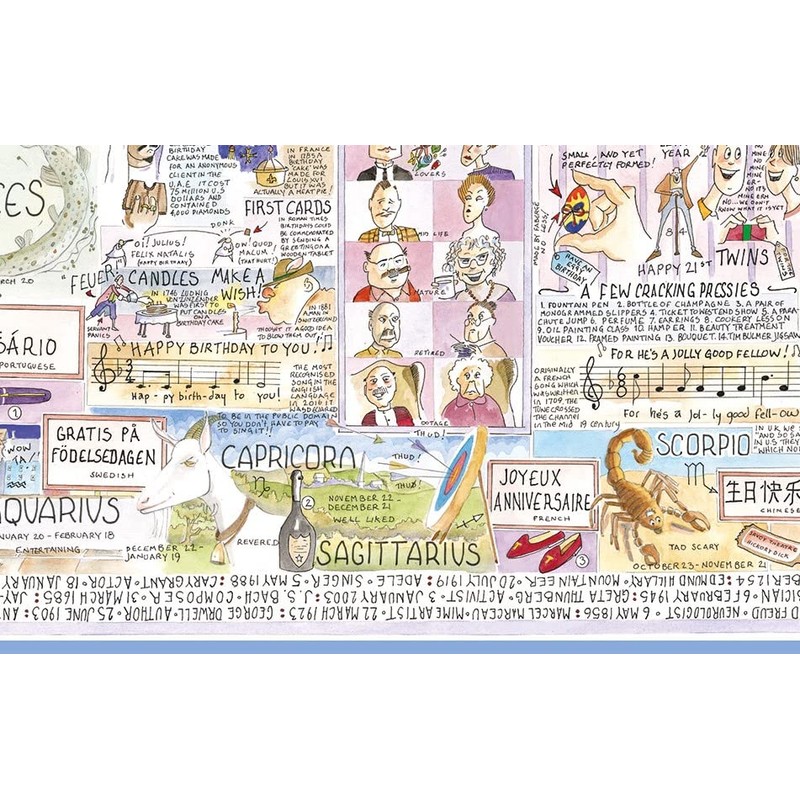 CES
RCH 20
BIRTHDAY
CAKE WAS MADE
FOR AN ANONYMOUS
CLIENT IN THE
U.A.E IT COST
75 MILLION U.S
DOLLARS AND
CONTAINED
4,000 DIAMONDS
IN FRANCE
IN 1785 A
BIRTHDAY
'CAKE' WAS
MADE FOR
LOUIS XVI
BUT IT WAS
ACTUALLY A MEAT PIE!
DONK
FIRST CARDS
IN ROMAN TIMES
BIRTHDAYS COULD
BE COMMEMORATED
BY SENDING A
GREETING ON A
WOODEN TABLET
OI! JULIUS!
FELIX NATALIS
(HAPPY BIRTHDAY)
OW! QUOD,
MALUM!
(THAT HURT!)
FEUER
CANDLES MAKE A
WISH!
IN 1746 LUDWIG
VON ZINZINDER
WAS FIRST TO
PUT CANDLES
ON A
BIRTHDAY CAKE
SERVANT
PANICS
IN 1881
A MAN IN
SWITZERLAND
THOUGHT IT A GOOD IDEA
TO BLOW THEM OUT
SÁRIO
PORTUGUESE
①
HAPPY BIRTHDAY TO YOU
Hap-py birth-day to you!
THE MOST
RECOGNISED
SONG IN THE
ENGLISH
LANGUAGE
IN 2016 IT
WAS DECLARED
TO BE IN THE PUBLIC DOMAIN
SO YOU DON'T HAVE TO PAY
TO SING IT!!
LOVERS
MID LIFE
MATURE
RETIRED
DOTAGE
SMALL, AND YET
PERFECTLY FORMED!
MADE BY FABERGÉ
NO LESS!
HAVE AN
EGGY
BIRTHDAY
YEAR
3 4
HAPPY 21ST
MINE
NO
MINE
NO ITS
MINE ERM
NO... WE DON'T
KNOW WHAT IT IS YET
TWINS
A FEW CRACKING PRESSIES
1. FOUNTAIN PEN 2. BOTTLE OF CHAMPAGNE 3. A PAIR OF
MONOGRAMMED SLIPPERS 4. TICKET TO WEST END SHOW 5. A PARA
CHUTE JUMP 6. PERFUME 7. EARRINGS 8. COOKERY LESSON
9. OIL PAINTING CLASS 10. HAMPER 11. BEAUTY TREATMENT
VOUCHER 12. FRAMED PAINTING 13. BOUQUET. 14. TIM BULMER JIGSAW
FOR HE'S A JOLLY GOOD FELLOW!
ORIGINALLY
A FRENCH
SONG WHICH
WAS WRITTEN
IN 1709, THE
TUNE CROSSED
THE CHANNEL
IN THE MID 19 century
For he's a jol-ly good fell-ow
WOW
TA!
AQUARIUS
ANUARY 20 - FEBRUARY 18
ENTERTAINING
GRATIS PÅ
FÖDELSEDAGEN
SWEDISH
DECEMBER 22-
JANUARY 19
CAPRICORN
REVERED
②
THUD!
THUD!
THUD!
NOVEMBER 22 -
DECEMBER 21
WELL LIKED
SAGITTARIUS
JOYEUX
ANNIVERSAIRE
FRENCH
③
SCORPIO
IN U.K. WE
"AND SO SA
IN US THEY
"WHICH NO
TAD SCARY
OCTOBER 23 - NOVEMBER 21
生日快乐
CHINESE
SAVOY THEATRE
HICKORY DICK
BER 1254 • EDMUND HILLARY • MOUNTAINEER • 20 JULY 1919 • ADELE • SINGER • 5 MAY 1988 • CARY GRANT • ACTOR • 18 JANUARY
SICIAN • 6 FEBRUARY 1945 • GRETA THUNBERG • ACTIVIST • 3 JANUARY 2003 • J.S. BACH • COMPOSER • 31 MARCH 1685 • JAY-
D FREUD • NEUROLOGIST • 6 MAY 1856 • MARCEL MARCEAU • MIME ARTIST • 22 MARCH 1923 • GEORGE ORWELL • AUTHOR • 25 JUNE 1903 • AN